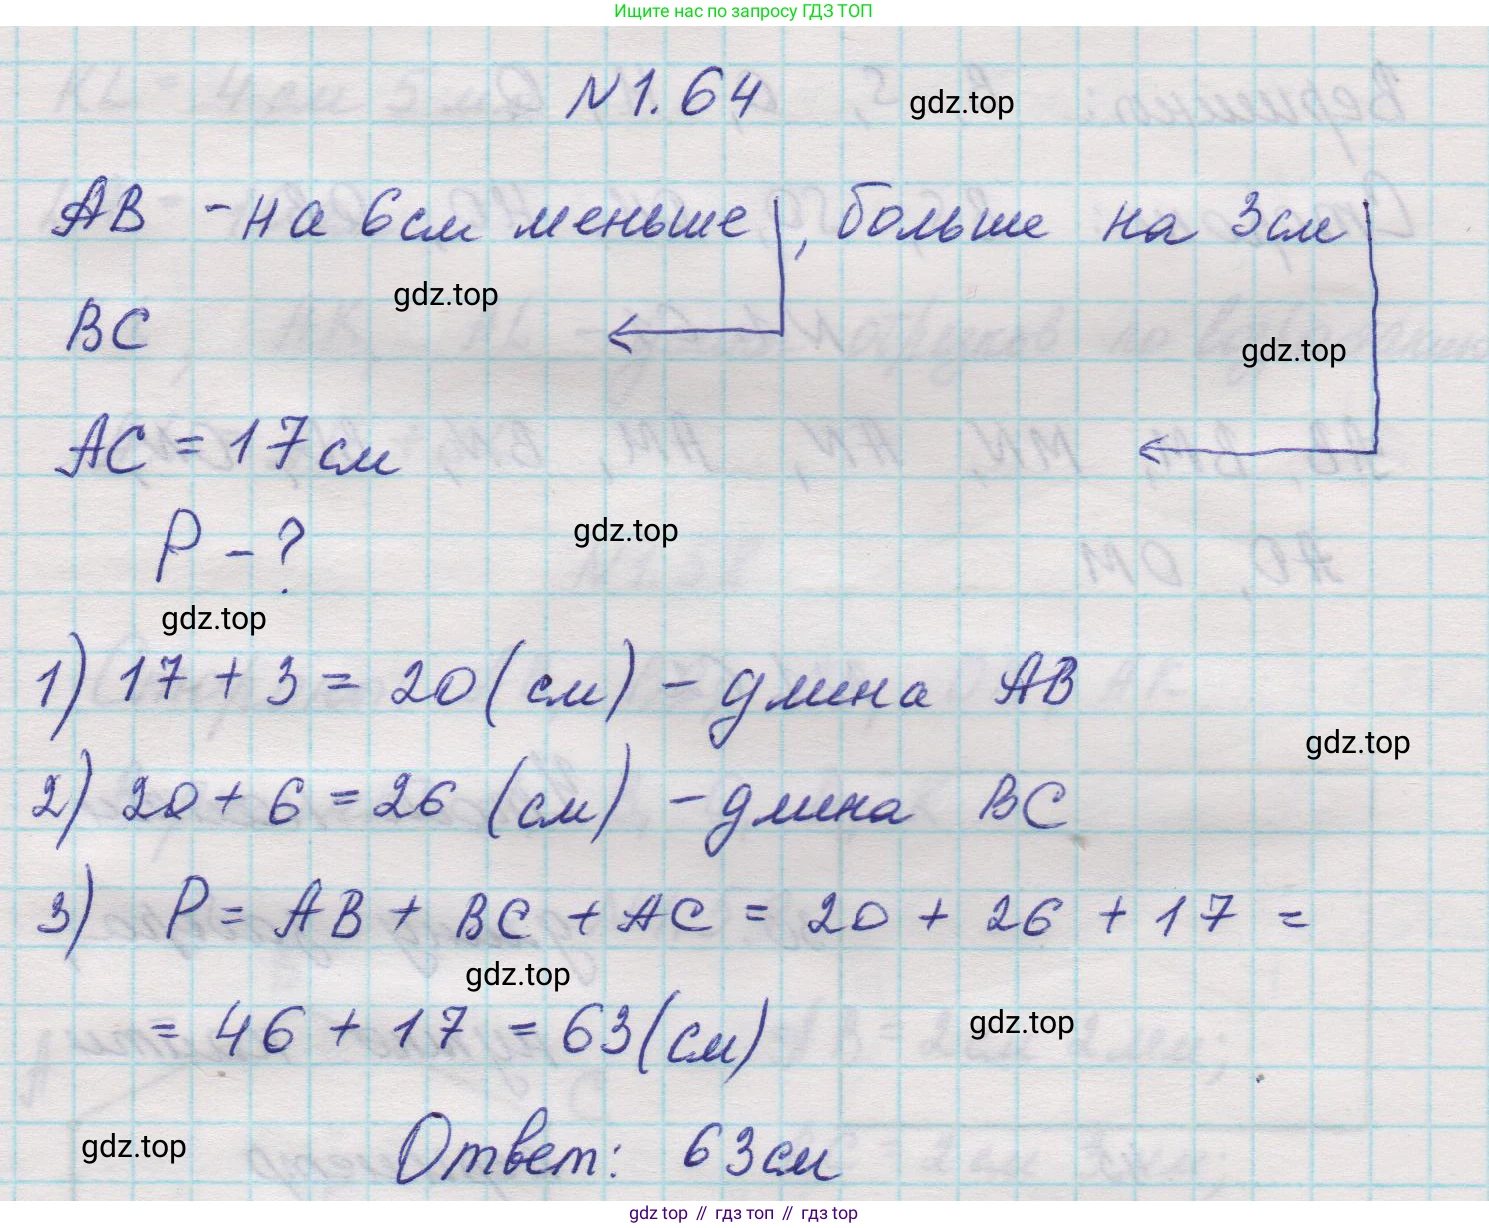 Ищите нас по запросу ГДЗ ТОП
N1.64
gdz.top
AB - на 6 см меньше, больше на 3 см
gdz.top
BC
gdz.top
AC = 17 см
P - ?
gdz.top
gdz.top
1) 17 + 3 = 20 (см) - длина AB
gdz.top
2) 20 + 6 = 26 (см) - длина BC
3) P = AB + BC + AC = 20 + 26 + 17 =
gdz.top
= 46 + 17 = 63 (см)
gdz.top
gdz.top
Ответ: 63 см
gdz top // гдз топ // гдз top